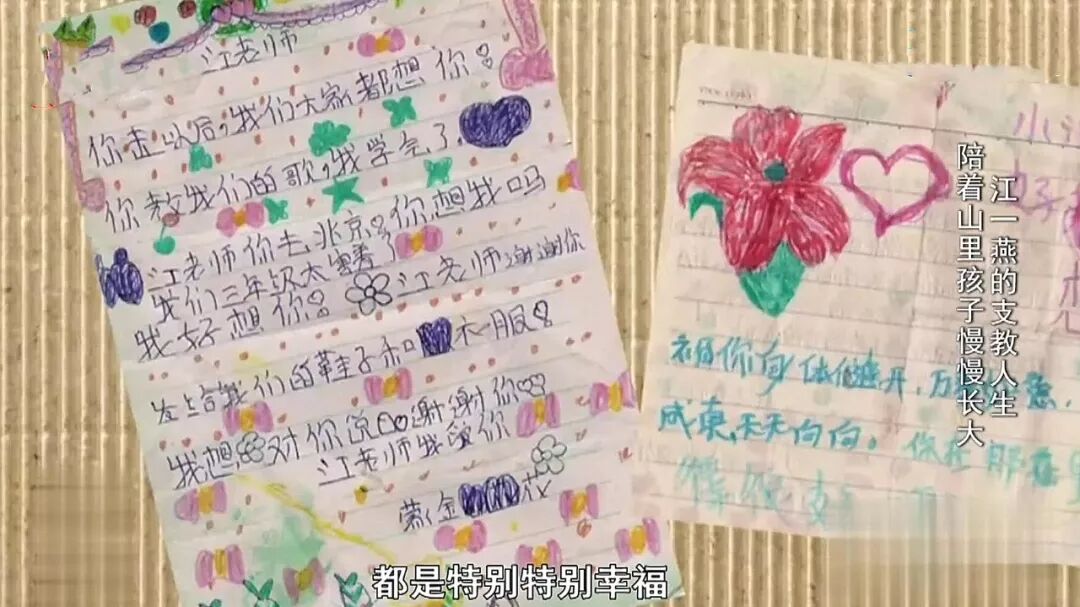 江老师
你走以后,我们大家都想你
你教我们的歌,我学完了
江老师你走北京。你想我吗
我们三年级太害羞了
我好想你 江老师谢谢你
发给我们的鞋子和 衣服
我想 对你说 谢谢你
江老师我 你
蒙金 花
小
祝你身体健 开,万 意,
成 天天向向。你在那
江一燕的支教人生
陪着山里孩子慢慢长大
都是特别特别幸福